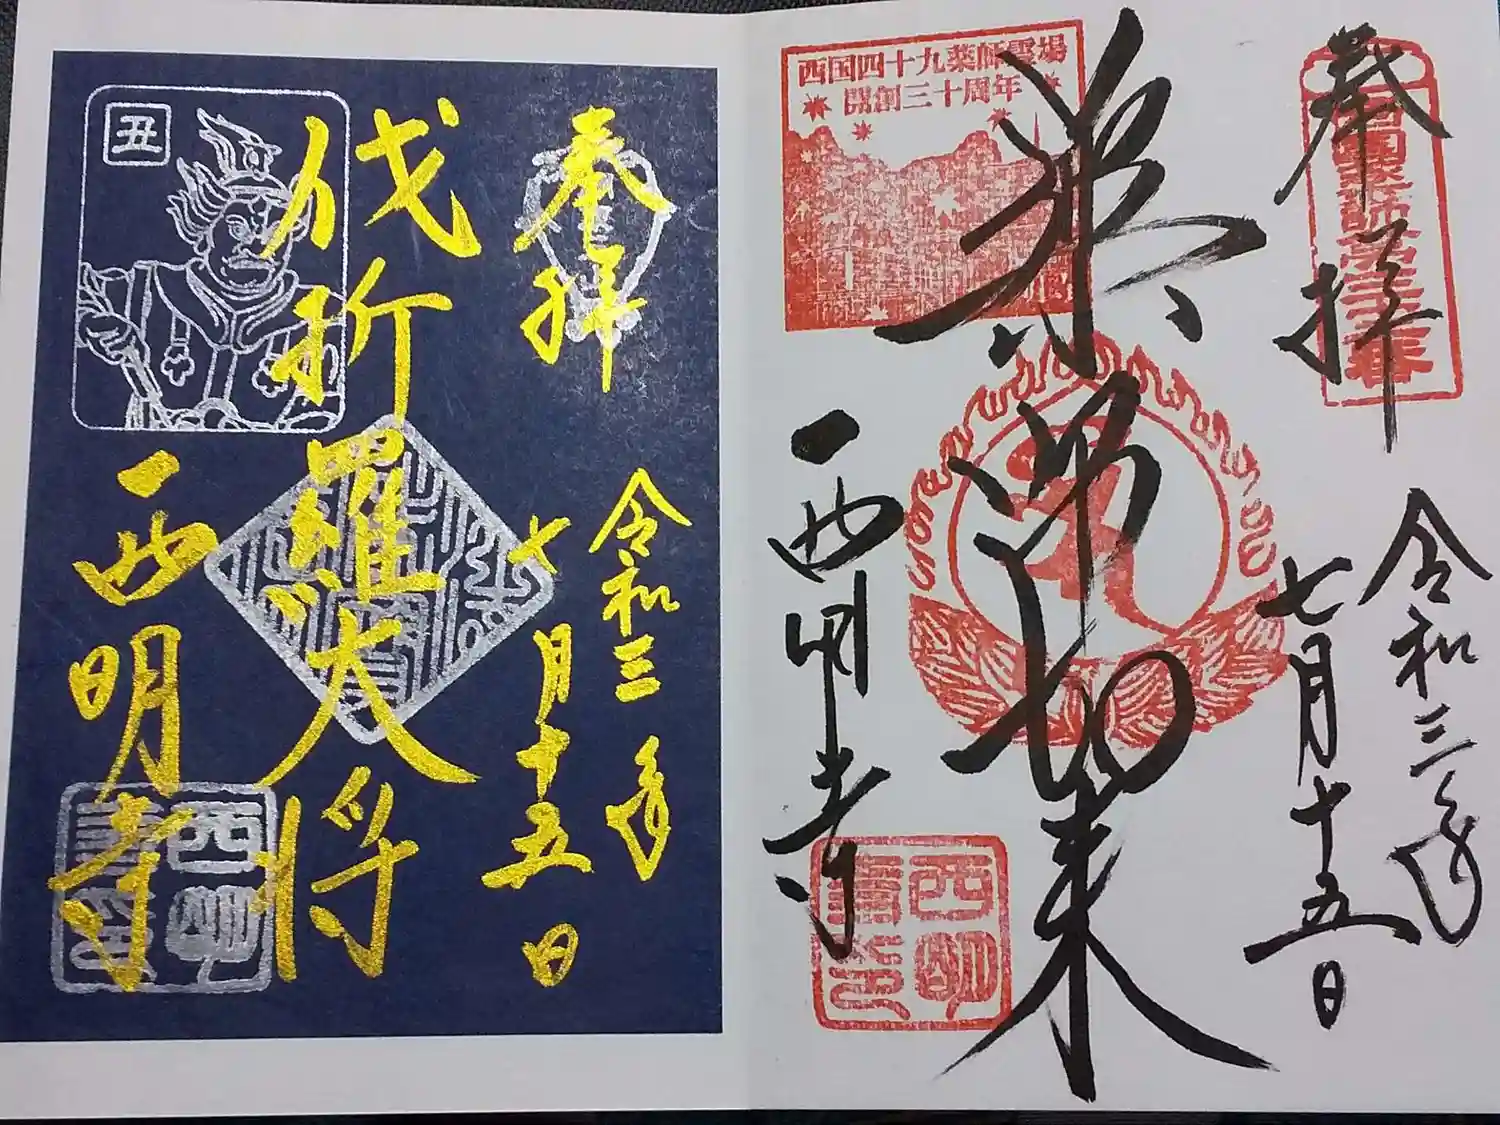 奉拝
西国四十九薬師霊場
開創三十周年
令和三年
七月十五日
薬師如来
西明寺
西明
寺印
奉拝
令和三年
七月十五日
伐折羅大将
丑
西明寺
西明
寺印